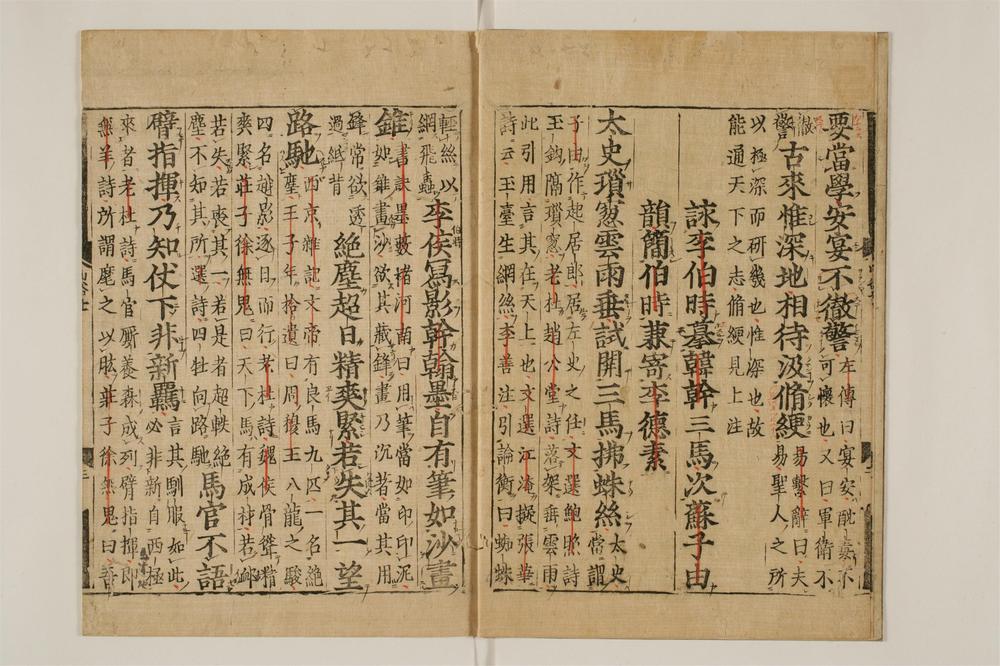 要當學安宴不徹警左傳曰宴安酖毒不可懷也又曰軍衛不
徹警古來惟深地相待汲脩綆易繫辭曰夫易聖人之所
以極深而研幾也惟深也故能通天下之志脩綆見上注
詠李伯時摹韓幹三馬次蘇子由
韻簡伯時兼寄李德素
太史瑣窓雲雨垂試開三馬拂蛛絲太史當謂
子由作起居郎居左史之任文選鮑照詩玉鈎隔瑣窓老杜趙公堂詩落架垂雲雨
此引用言其在天上也文選江淹擬張華詩云玉臺生網絲李善注引論衡曰蜘蛛
輕絲以網飛蟲李侯寫影幹翰墨自有筆如沙畫
錐書訣墨藪褚河南曰用筆當如印印泥如錐畫沙欲其藏鋒畫乃沉著當其用
鋒常欲透過紙背絕塵超日精爽緊若失其一望
路馳西京雜記文帝有良馬九匹一名絕塵王子年拾遺曰周穆王八龍之駿
四名越影逐日而行老杜詩魏侯骨聳精爽緊莊子徐無鬼曰天下馬有成神若䘏
若失若喪其一若是者超軼絕塵不知其所選詩四牡向路馳馬官不語
臂指揮乃知仗下非新羈言其馴服如此必非新自西極
來者老杜詩馬官厮養森成列臂指揮即無羊詩所謂麾之以肱莊子徐無鬼曰吾